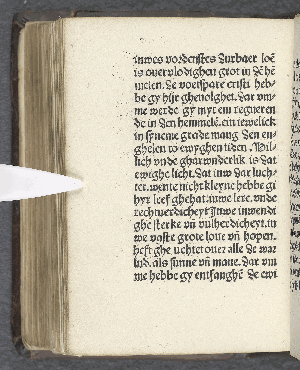 inwes vordenstes durbaer loē
is overvlodighen grot in dē hē
melen. de voetspare cristi heb⸗
be gy hijr ghevolghet. dar vm⸗
me werde gy myt em regneren
de in den hemmelē. ein iewelick
in syneme grade mang den en⸗
ghelen to ewyghen tiden. Mil⸗
lich vnde ghar wnderlik is dat
ewighe licht. dat inw dar luch⸗
tet. wente nicht kleyne hebbe gi
hyr leef ghehat. inwe lere. vnde
rechtuerdicheyt Inwe inwendi
ghe sterke vn̄ vulherdicheyt. in
we vaste grote loue vn̄ hopen.
heft ghe luchtet ouer alle de wer
lyd. als sunne vn̄ mane. dar vm
me hebbe gy entfanghē de ewi